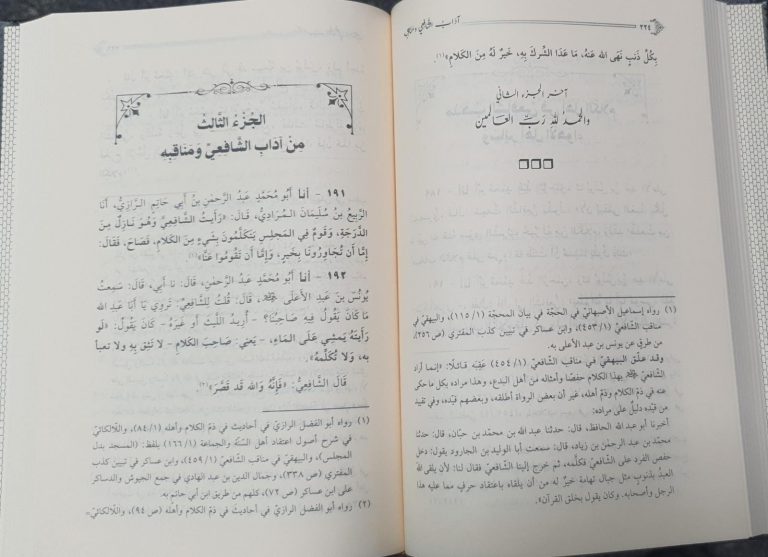 ٢٢٤
آداب الشافعي ومناقبه
بِكُلِّ ذَنبٍ نَهَى الله عَنهُ، مَا عَدَا الشِّركَ بِهِ، خَيرٌ لَهُ مِنَ الكَلَامِ»(١).
آخر الجزء الثاني
والحمد لله رب العالمين
(١) رواه إسماعيل الأصبهاني في الحجة في بيان المحجة (١١٥/١)، والبيهقي في
مناقب الشافعي (٤٥٣/١)، وابن عساكر في تبيين كذب المفتري (ص ٢٥٦)،
من طرقٍ عن يونس بن عبد الأعلى به.
وقد علَّق البيهقي في مناقب الشافعي (٤٥٤/١) عَقِبَه قائلًا: «إنما أراد
الشافعي بهذا الكلام حفصًا وأمثاله من أهل البدع، وهذا مراده بكل ما حكي
عنه في ذمّ الكلام وذم أهله، غير أن بعض الرواة أطلقه، وبعضهم قيده، وفي تقييد
من قيّده دليلٌ على مراده:
أخبرنا أبو عبد الله الحافظ، قال: حدثنا عبد الله بن محمّد بن حيّان، قال: حدثنا
محمّد بن عبد الرحمٰن بن زياد، قال: سمعت أبا الوليد بن الجارود يقول: دخل
حفص الفرد على الشافعيّ فكلَّمه، ثم خرج إلينا الشافعيّ فقال لنا: لأن يلقى الله
العبدُ بذنوبٍ مثل جبال تهامة خيرٌ له من أن يلقاه باعتقاد حرفٍ مما عليه هذا
الرجل وأصحابه. وكان يقول بخلق القرآن».
الجُزءُ الثَّالِثُ
مِنْ آدَابِ الشَّافِعِيِّ وَمَنَاقِبِهِ
١٩١ - أنا أَبُو مُحَمَّدٍ عَبدُ الرَّحمٰنِ بنُ أَبِي حَاتِمٍ الرَّازِيُّ، أَنَا
الرَّبِيعُ بنُ سُلَيمَانَ المُرَادِيُّ، قَالَ: «رَأَيتُ الشَّافِعِيَّ وَهُوَ نَازِلٌ مِنَ
الدَّرَجَةِ، وَقَومٌ فِي المَجلِسِ يَتَكَلَّمُونَ بِشَيءٍ مِنَ الكَلَامِ، فَصَاحَ، فَقَالَ:
إِمَّا أَن تُجَاوِرُونَا بِخَيرٍ، وَإِمَّا أَن تَقُومُوا عَنَّا»(١).
١٩٢ - أنا أَبُو مُحَمَّدٍ عَبدُ الرَّحمٰنِ، قَالَ: نا أَبِي، قَالَ: سَمِعتُ
يُونُسَ بنَ عَبدِ الأَعلَى، قَالَ: قُلتُ لِلشَّافِعِيِّ: تَروِي يَا أَبَا عَبدِ الله
مَا كَانَ يَقُولُ فِيهِ صَاحِبُنَا؟ - أُرِيدُ اللَّيثَ أَو غَيرَهُ - كَانَ يَقُولُ: «لَو
رَأَيتَهُ يَمشِي عَلَى المَاءِ، - يَعنِي: صَاحِبَ الكَلَامِ - لَا تَثِق بِهِ وَلَا تَعبَأ
بِهِ، وَلَا تُكَلِّمهُ».
قَالَ الشَّافِعِيُّ: «فَإِنَّهُ وَالله قَد قَصَّرَ»(٢).
(١) رواه أبو الفضل الرازي في أحاديث في ذمّ الكلام وأهله (ص ٨٤/١)، واللّالكائيّ
في شرح أصول اعتقاد أهل السنّة والجماعة (١٦٦/١) بلفظ: (المسجد بدل
المجلس)، والبيهقيّ في مناقب الشافعيّ (٤٥٩/١)، وابن عساكر في تبيين كذب
المفتري (ص ٣٣٨)، وجمال الدين بن عبد الهادي في جمع الجيوش والدساكر
على ابن عساكر (ص ٧٢)، كلهم من طريق ابن أبي حاتم به.
(٢) رواه أبو الفضل الرازي في أحاديث في ذمّ الكلام وأهله (ص ٩٤)، واللّالكائيّ=